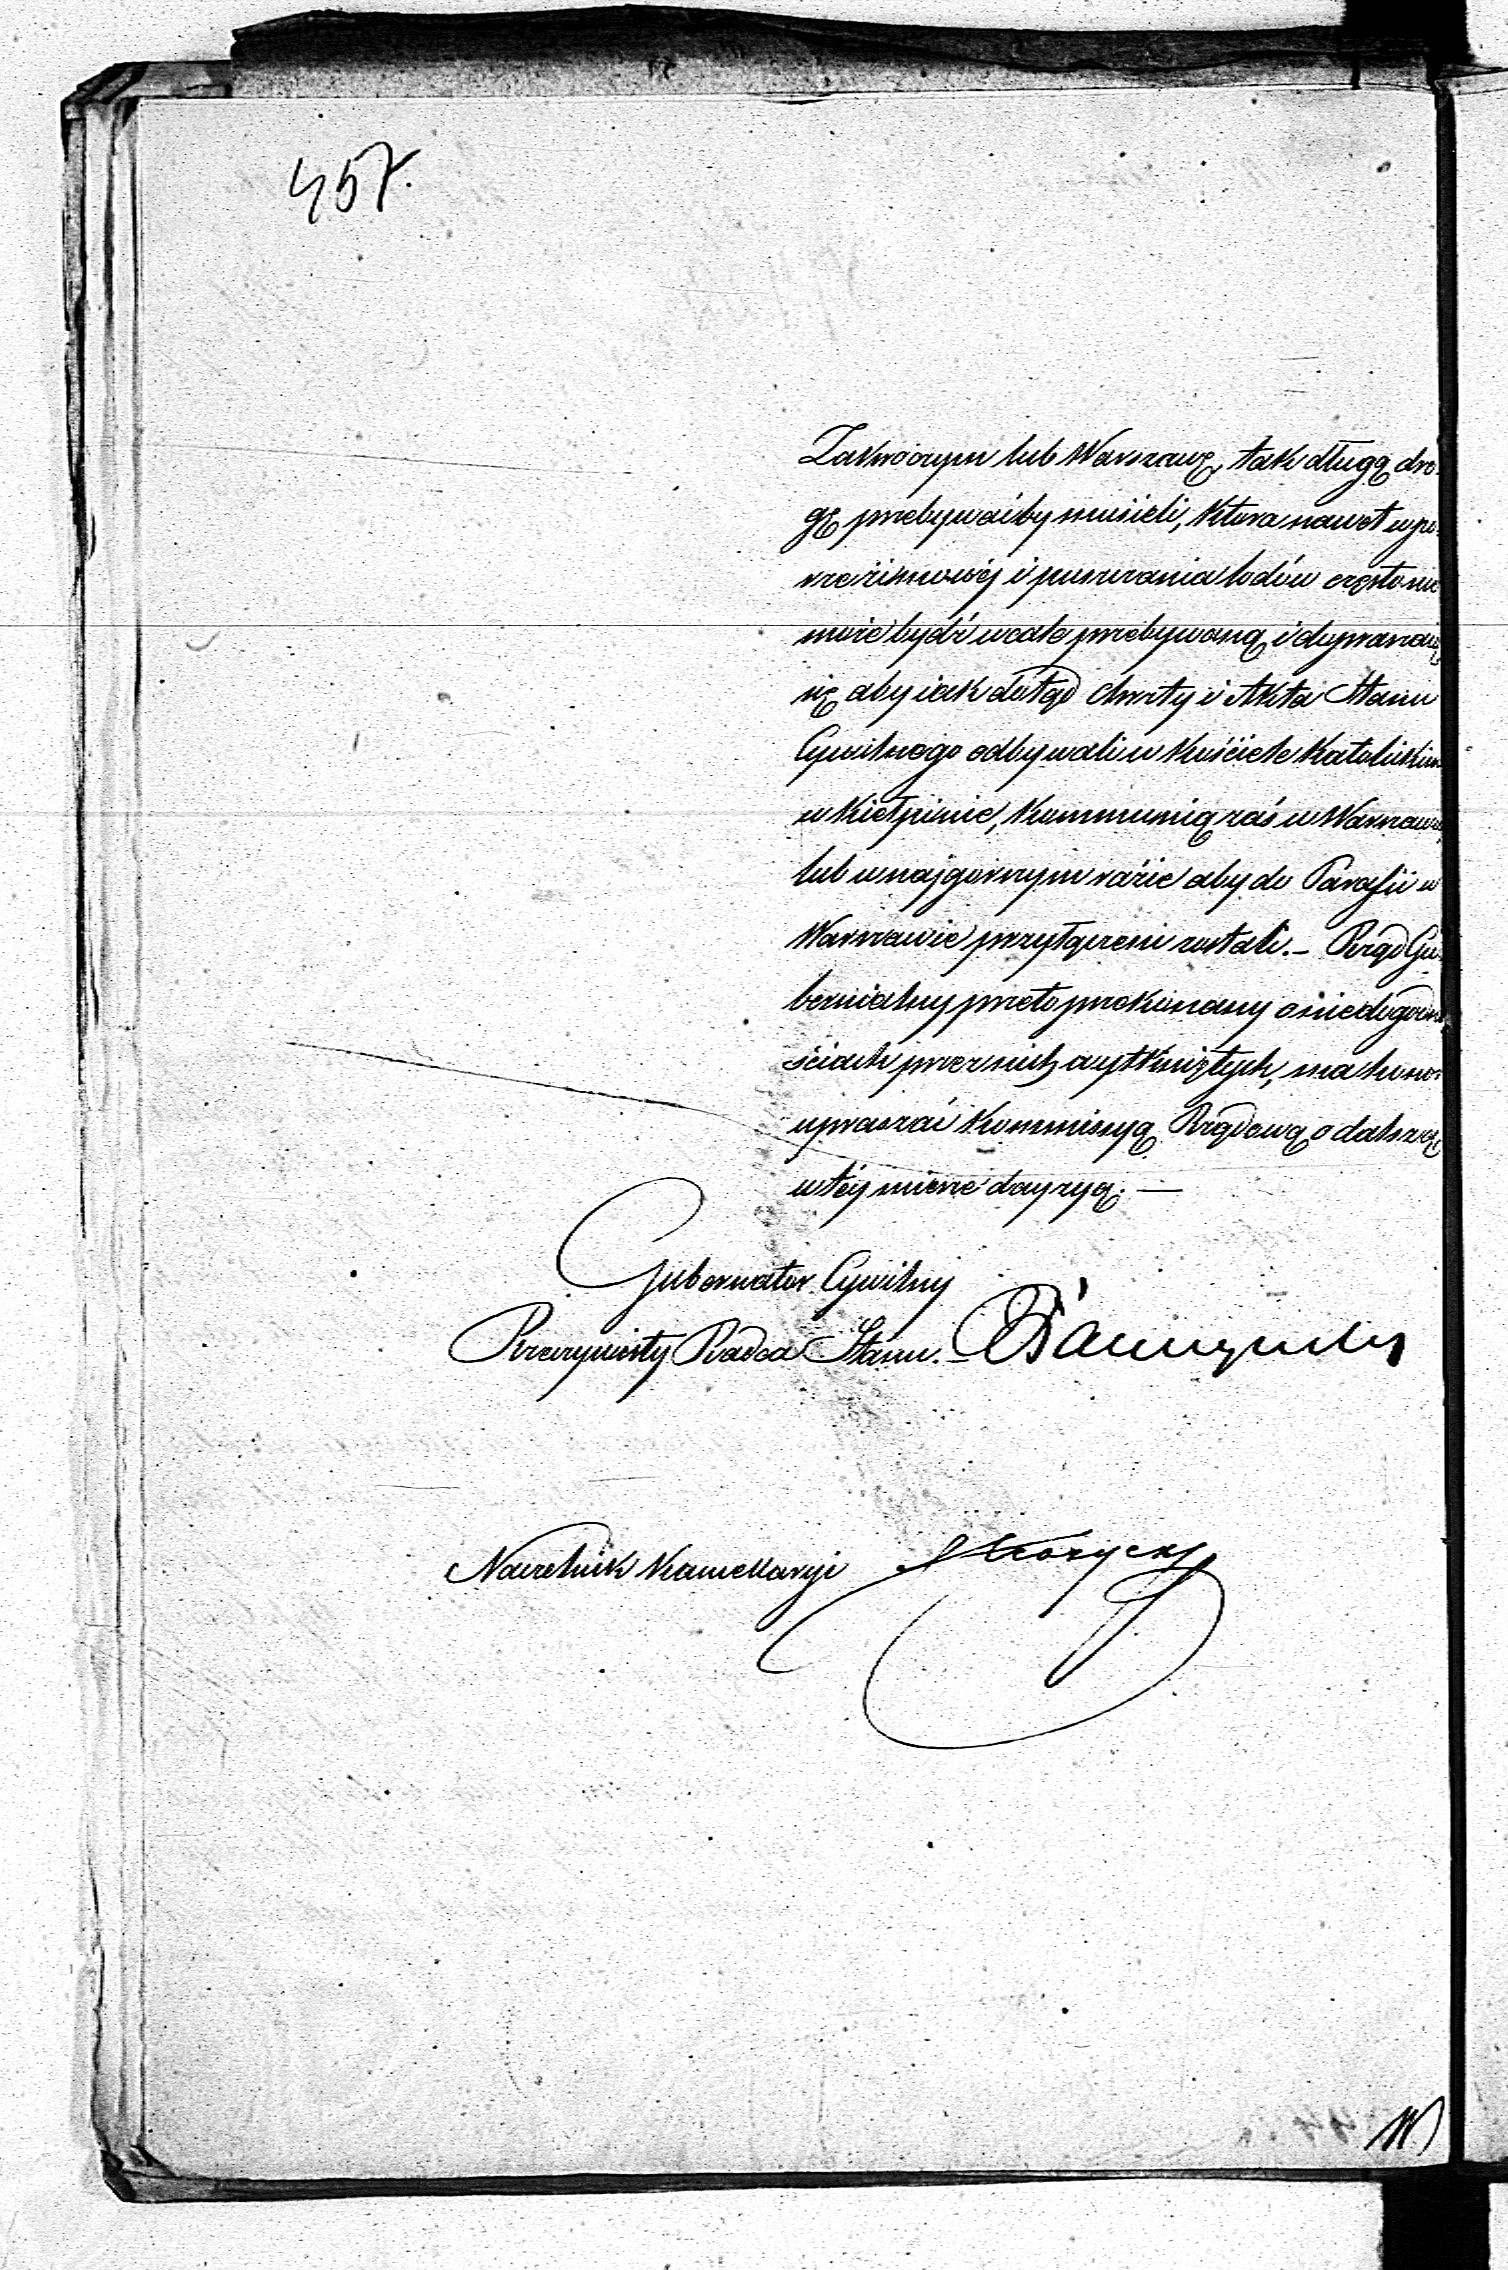 457.
Zakroczym lub Warszawę, tak długą dro-
gę przebywaćby musieli, która nawet w po-
rze zimowéj i puszczania lodów często nie
może bydź wcale przebywaną, i dopraszają
się aby iak dotąd Chrzty i Akta Stanu
Cywilnego odbywali w Kościele Katolickim
w Kiełpinie, Kommunią zaś w Warszawie,
lub w najgorszym raźie aby do Parafii w
Warszawie przyłączeni zostali. — Rząd Gu-
bernialny przeto przekonany o niedogodno-
ściach przez nich wytkniętych, ma honor
upraszać Kommissyą Rządową o dalszą
w téj mierze decyzyą. —
Gubernator Cywilny
Rzeczywisty Radca Stanu. —
Naczelnik Kancellaryi